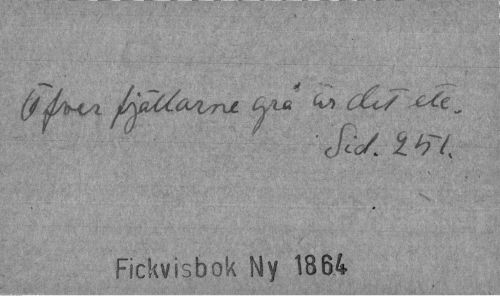 Öfver fjällarne grå är det etc.
Sid. 251.
Fickvisbok Ny 1864